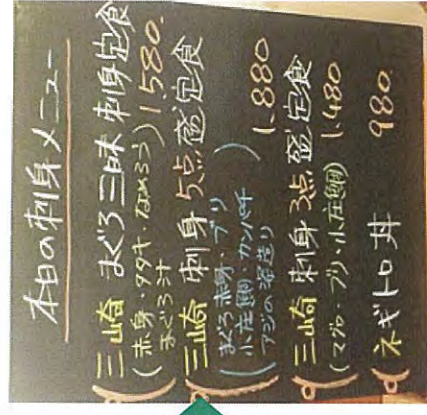 本日の刺身メニュー
三崎 まぐろ三昧 刺身定食
(赤身・タタキ・なめろう) 1,580.
まぐろ汁
三崎 刺身 5点盛定食
(まぐろ赤身・ブリ
小庄鯛・カンパチ
アジの姿造り) 1,880
三崎 刺身 3点盛定食
(マグロ・ブリ・小庄鯛) 1,480
ネギトロ丼 980.